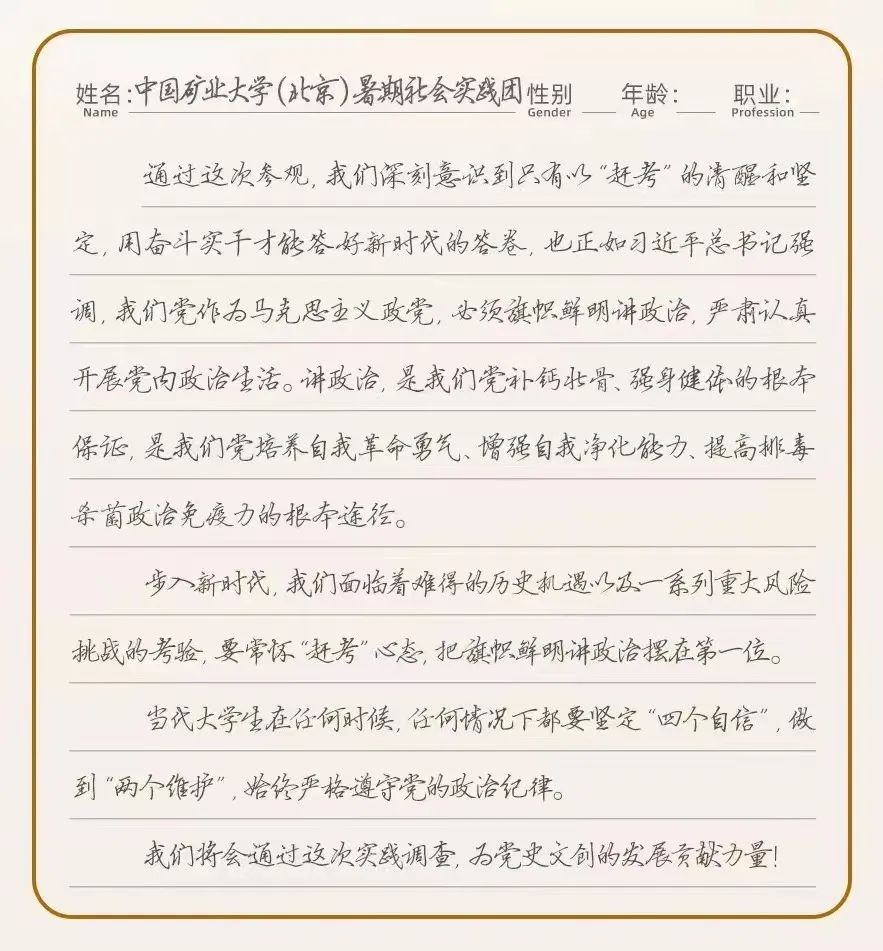 姓名：中国矿业大学(北京)暑期社会实践团 性别 年龄： 职业：
Name Gender Age Profession
通过这次参观，我们深刻意识到只有以“赶考”的清醒和坚
定，用奋斗实干才能答好新时代的答卷，也正如习近平总书记强
调，我们党作为马克思主义政党，必须旗帜鲜明讲政治，严肃认真
开展党内政治生活。讲政治，是我们党补钙壮骨、强身健体的根本
保证，是我们党培养自我革命勇气、增强自我净化能力、提高排毒
杀菌政治免疫力的根本途径。
步入新时代，我们面临着难得的历史机遇以及一系列重大风险
挑战的考验，要常怀“赶考”心态，把旗帜鲜明讲政治摆在第一位。
当代大学生在任何时候，任何情况下都要坚定“四个自信”，做
到“两个维护”，始终严格遵守党的政治纪律。
我们将会通过这次实践调查，为党史文创的发展贡献力量！